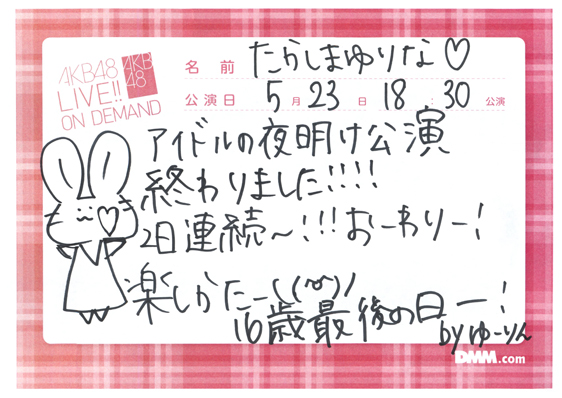 AKB48
LIVE!!
ON DEMAND
AKB
48
名前 たかしまゆりな♡
公演日 5月23日 18:30公演
アイドルの夜明け公演
終わりました!!!!
2日連続〜!!!おーわりー!
楽しかたー\(^^)/
16歳最後の日ー!
byゆーりん
DMM.com